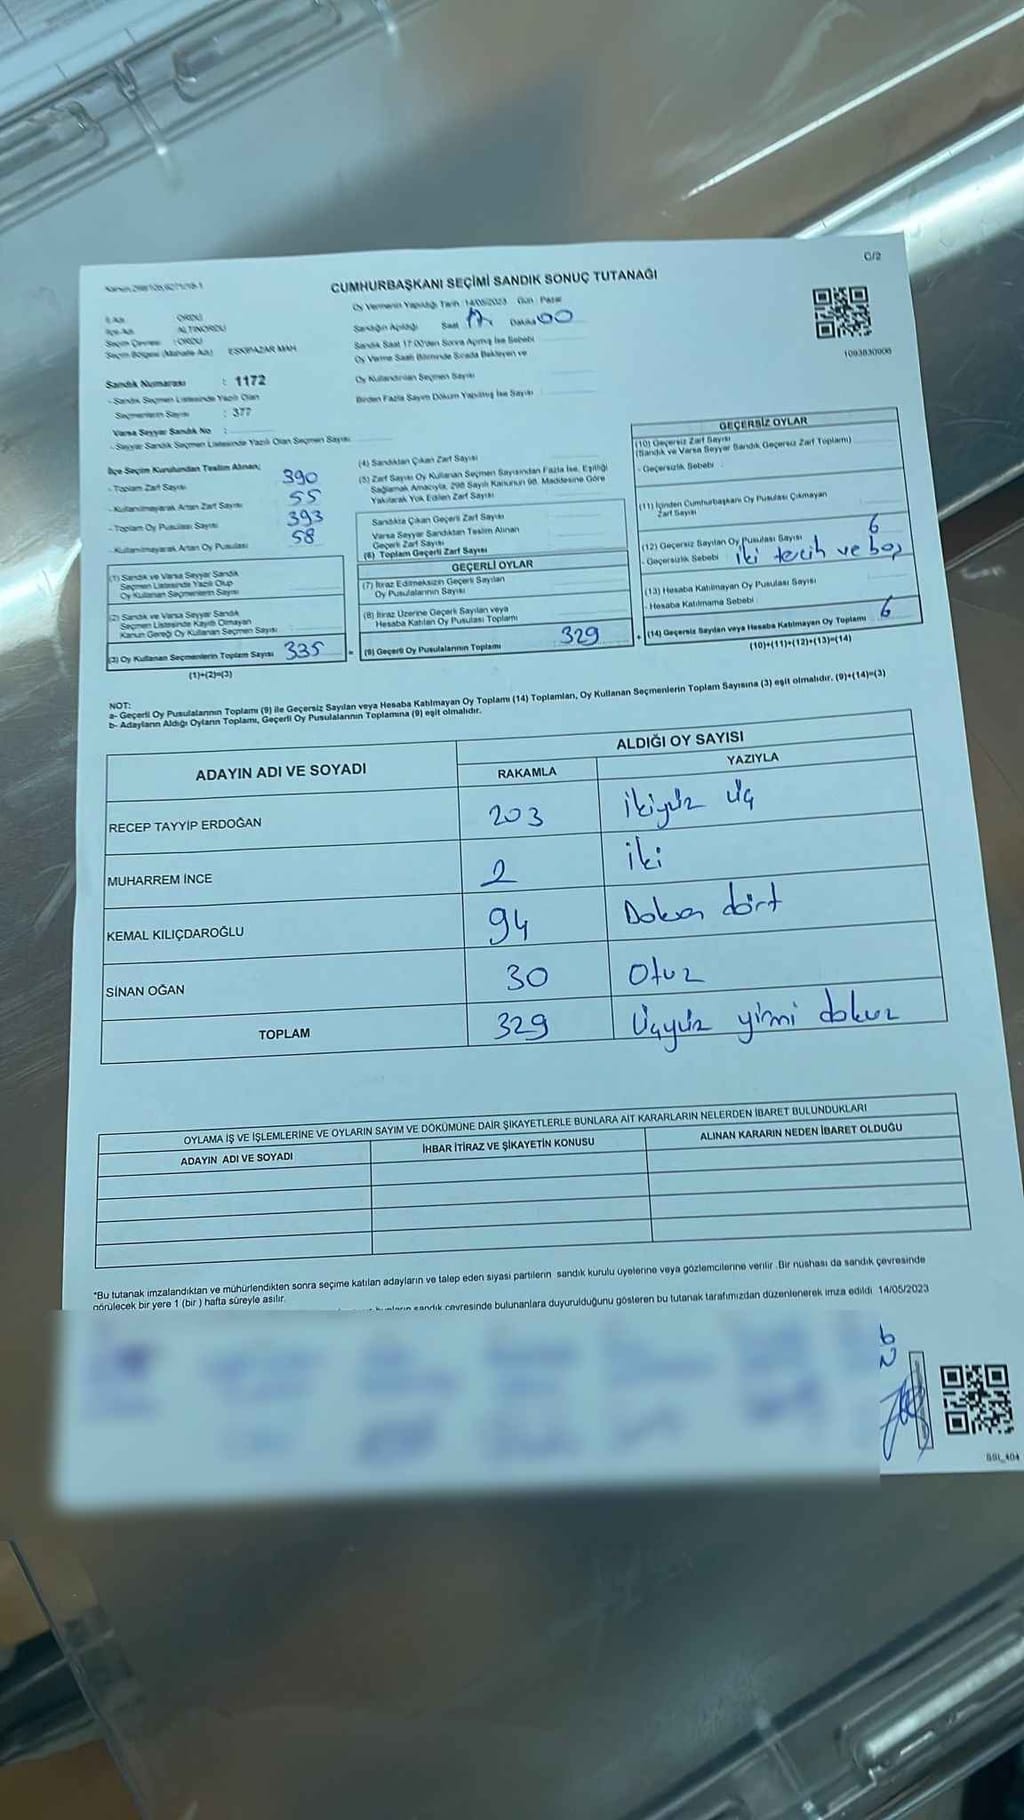 C/2
CUMHURBAŞKANI SEÇİMİ SANDIK SONUÇ TUTANAĞI
Oy Vermenin Yapıldığı Tarih 14/05/2023 Gün Pazar
ORDU
ALTINORDU
ORDU
Seçim Bölgesi (Mahalle Adı) ESKİPAZAR MAH
Sandığın Açıldığı Saat 17 Dakika 00
Sandık Saat 17:00'den Sonra Açılmış İse Sebebi
Oy Verme Saati Bitiminde Sırada Bekleyen ve
Oy Kullandırılan Seçmen Sayısı
Birden Fazla Sayım Döküm Yapılmış İse Sayısı
1093830906
Sandık Numarası : 1172
- Sandık Seçmen Listesinde Yazılı Olan
Seçmenlerin Sayısı : 377
Varsa Seyyar Sandık No :
- Seyyar Sandık Seçmen Listesinde Yazılı Olan Seçmen Sayısı
İlçe Seçim Kurulundan Teslim Alınan;
- Toplam Zarf Sayısı 390
- Kullanılmayarak Artan Zarf Sayısı 55
- Toplam Oy Pusulası Sayısı 393
- Kullanılmayarak Artan Oy Pusulası 58
(1) Sandık ve Varsa Seyyar Sandık
Seçmen Listesinde Yazılı Olup
Oy Kullanan Seçmenlerin Sayısı
(2) Sandık ve Varsa Seyyar Sandık
Seçmen Listesinde Kayıtlı Olmayan
Kanun Gereği Oy Kullanan Seçmen Sayısı
(3) Oy Kullanan Seçmenlerin Toplam Sayısı 335
(1)+(2)=(3)
(4) Sandıktan Çıkan Zarf Sayısı
(5) Zarf Sayısı Oy Kullanan Seçmen Sayısından Fazla İse, Eşitliği
Sağlamak Amacıyla, 298 Sayılı Kanunun 98. Maddesine Göre
Yakılarak Yok Edilen Zarf Sayısı
Sandıkta Çıkan Geçerli Zarf Sayısı
Varsa Seyyar Sandıktan Teslim Alınan
Geçerli Zarf Sayısı
(6) Toplam Geçerli Zarf Sayısı
GEÇERLİ OYLAR
(7) İtiraz Edilmeksizin Geçerli Sayılan
Oy Pusulalarının Sayısı
(8) İtiraz Üzerine Geçerli Sayılan veya
Hesaba Katılan Oy Pusulası Toplamı
= (9) Geçerli Oy Pusulalarının Toplamı 329
GEÇERSİZ OYLAR
(10) Geçersiz Zarf Sayısı
(Sandık ve Varsa Seyyar Sandık Geçersiz Zarf Toplamı)
- Geçersizlik Sebebi
(11) İçinden Cumhurbaşkanı Oy Pusulası Çıkmayan
Zarf Sayısı
(12) Geçersiz Sayılan Oy Pusulası Sayısı 6
- Geçersizlik Sebebi iki tercih ve boş
(13) Hesaba Katılmayan Oy Pusulası Sayısı
- Hesaba Katılmama Sebebi
+ (14) Geçersiz Sayılan veya Hesaba Katılmayan Oy Toplamı 6
(10)+(11)+(12)+(13)=(14)
NOT:
a- Geçerli Oy Pusulalarının Toplamı (9) ile Geçersiz Sayılan veya Hesaba Katılmayan Oy Toplamı (14) Toplamları, Oy Kullanan Seçmenlerin Toplam Sayısına (3) eşit olmalıdır. (9)+(14)=(3)
b- Adayların Aldığı Oyların Toplamı, Geçerli Oy Pusulalarının Toplamına (9) eşit olmalıdır.
ADAYIN ADI VE SOYADI
ALDIĞI OY SAYISI
RAKAMLA YAZIYLA
RECEP TAYYİP ERDOĞAN 203 ikiyüz üç
MUHARREM İNCE 2 iki
KEMAL KILIÇDAROĞLU 94 Doksan dört
SİNAN OĞAN 30 otuz
TOPLAM 329 üçyüz yirmi dokuz
OYLAMA İŞ VE İŞLEMLERİNE VE OYLARIN SAYIM VE DÖKÜMÜNE DAİR ŞİKAYETLERLE BUNLARA AİT KARARLARIN NELERDEN İBARET BULUNDUKLARI
ADAYIN ADI VE SOYADI İHBAR İTİRAZ VE ŞİKAYETİN KONUSU ALINAN KARARIN NEDEN İBARET OLDUĞU
*Bu tutanak imzalandıktan ve mühürlendikten sonra seçime katılan adayların ve talep eden siyasi partilerin sandık kurulu üyelerine veya gözlemcilerine verilir .Bir nüshası da sandık çevresinde
görülecek bir yere 1 (bir ) hafta süreyle asılır.
sandık çevresinde bulunanlara duyurulduğunu gösteren bu tutanak tarafımızdan düzenlenerek imza edildi 14/05/2023